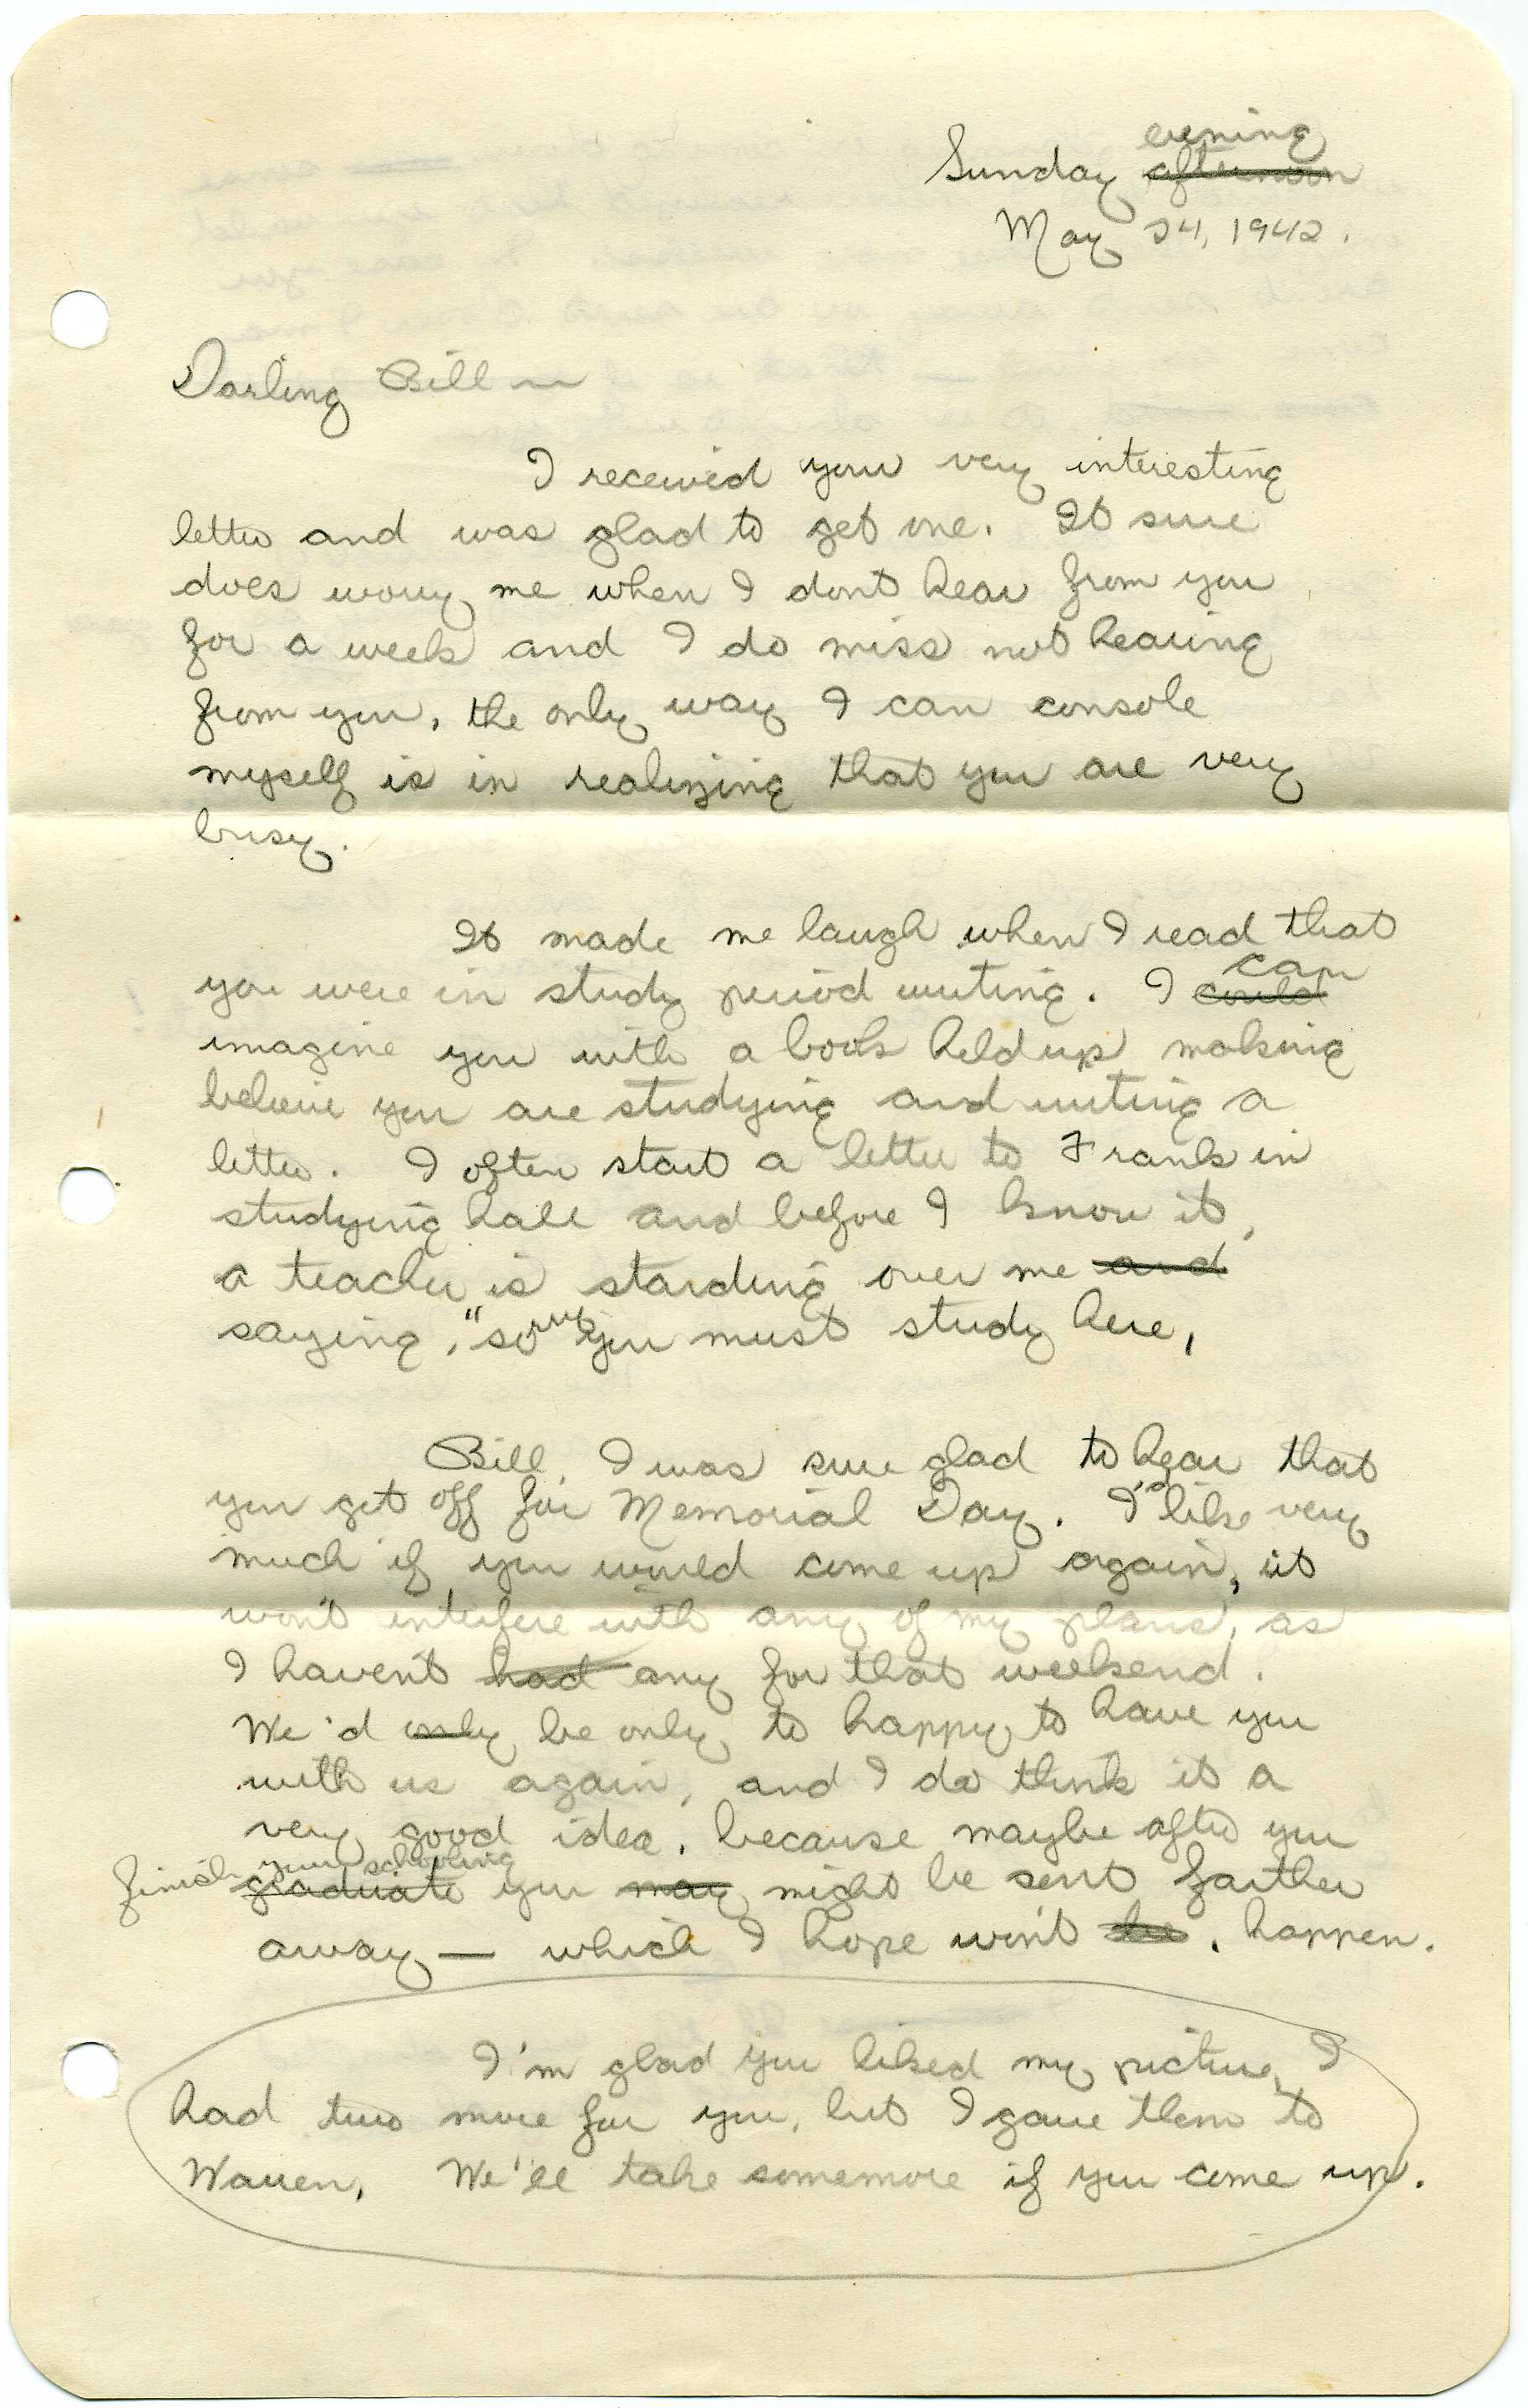 evening
Sunday ~~afternoon~~
May 24, 1942.
Darling Bill —
I received your very interesting
letter and was glad to get one. It sure
does worry me when I don't hear from you
for a week and I do miss not hearing
from you, the only way I can console
myself is in realizing that you are very
busy.
It made me laugh when I read that
can
you were in study period writing. I ~~could~~
imagine you with a book held up making
believe you are studying and writing a
letter. I often start a letter to Frank in
studying hall and before I know it,
a teacher is standing over me ~~and~~
saying, "sorry you must study here,
Bill, I was sure glad to hear that
you get off for Memorial Day. I'd like very
much if you would come up again, it
won't interfere with any of my plans, as
I haven't ~~had~~ any for that weekend.
We'd ~~only~~ be only to happy to have you
with us again, and I do think it a
very good idea, because maybe after you
finish your schooling
~~graduate~~ you ~~may~~ might be sent farther
away — which I hope won't ~~be~~. happen.
I'm glad you liked my picture, I
had two more for you, but I gave them to
Warren. We'll take somemore if you come up.